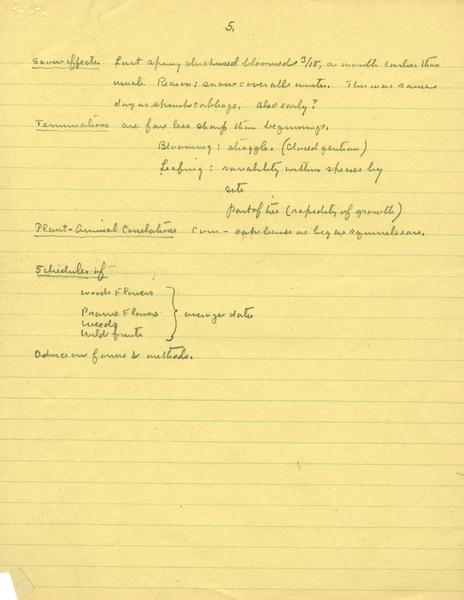 5.
Snow effects. Last spring chickweed bloomed 3/18, a month earlier than
usual. Reason: snow cover all winter. This was same
day as skunk cabbage. Also early?
Terminations are far less sharp than beginnings.
Blooming: straggle. (Closed gentian)
Leafing: variability within species by
site
Part of tree (rapidity of growth)
Plant-Animal Correlations Corn - oak leaves as big as squirrels ears.
Schedules of
Woods Flowers
Prairie Flowers } average dates
Weeds
Wild fruits
Advice on forms & methods.